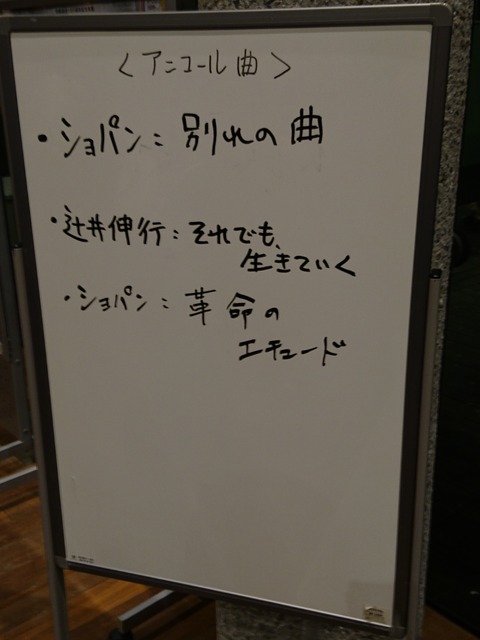 〈アンコール曲〉
・ショパン：別れの曲
・辻井伸行：それでも、
生きていく
・ショパン：革命の
エチュード